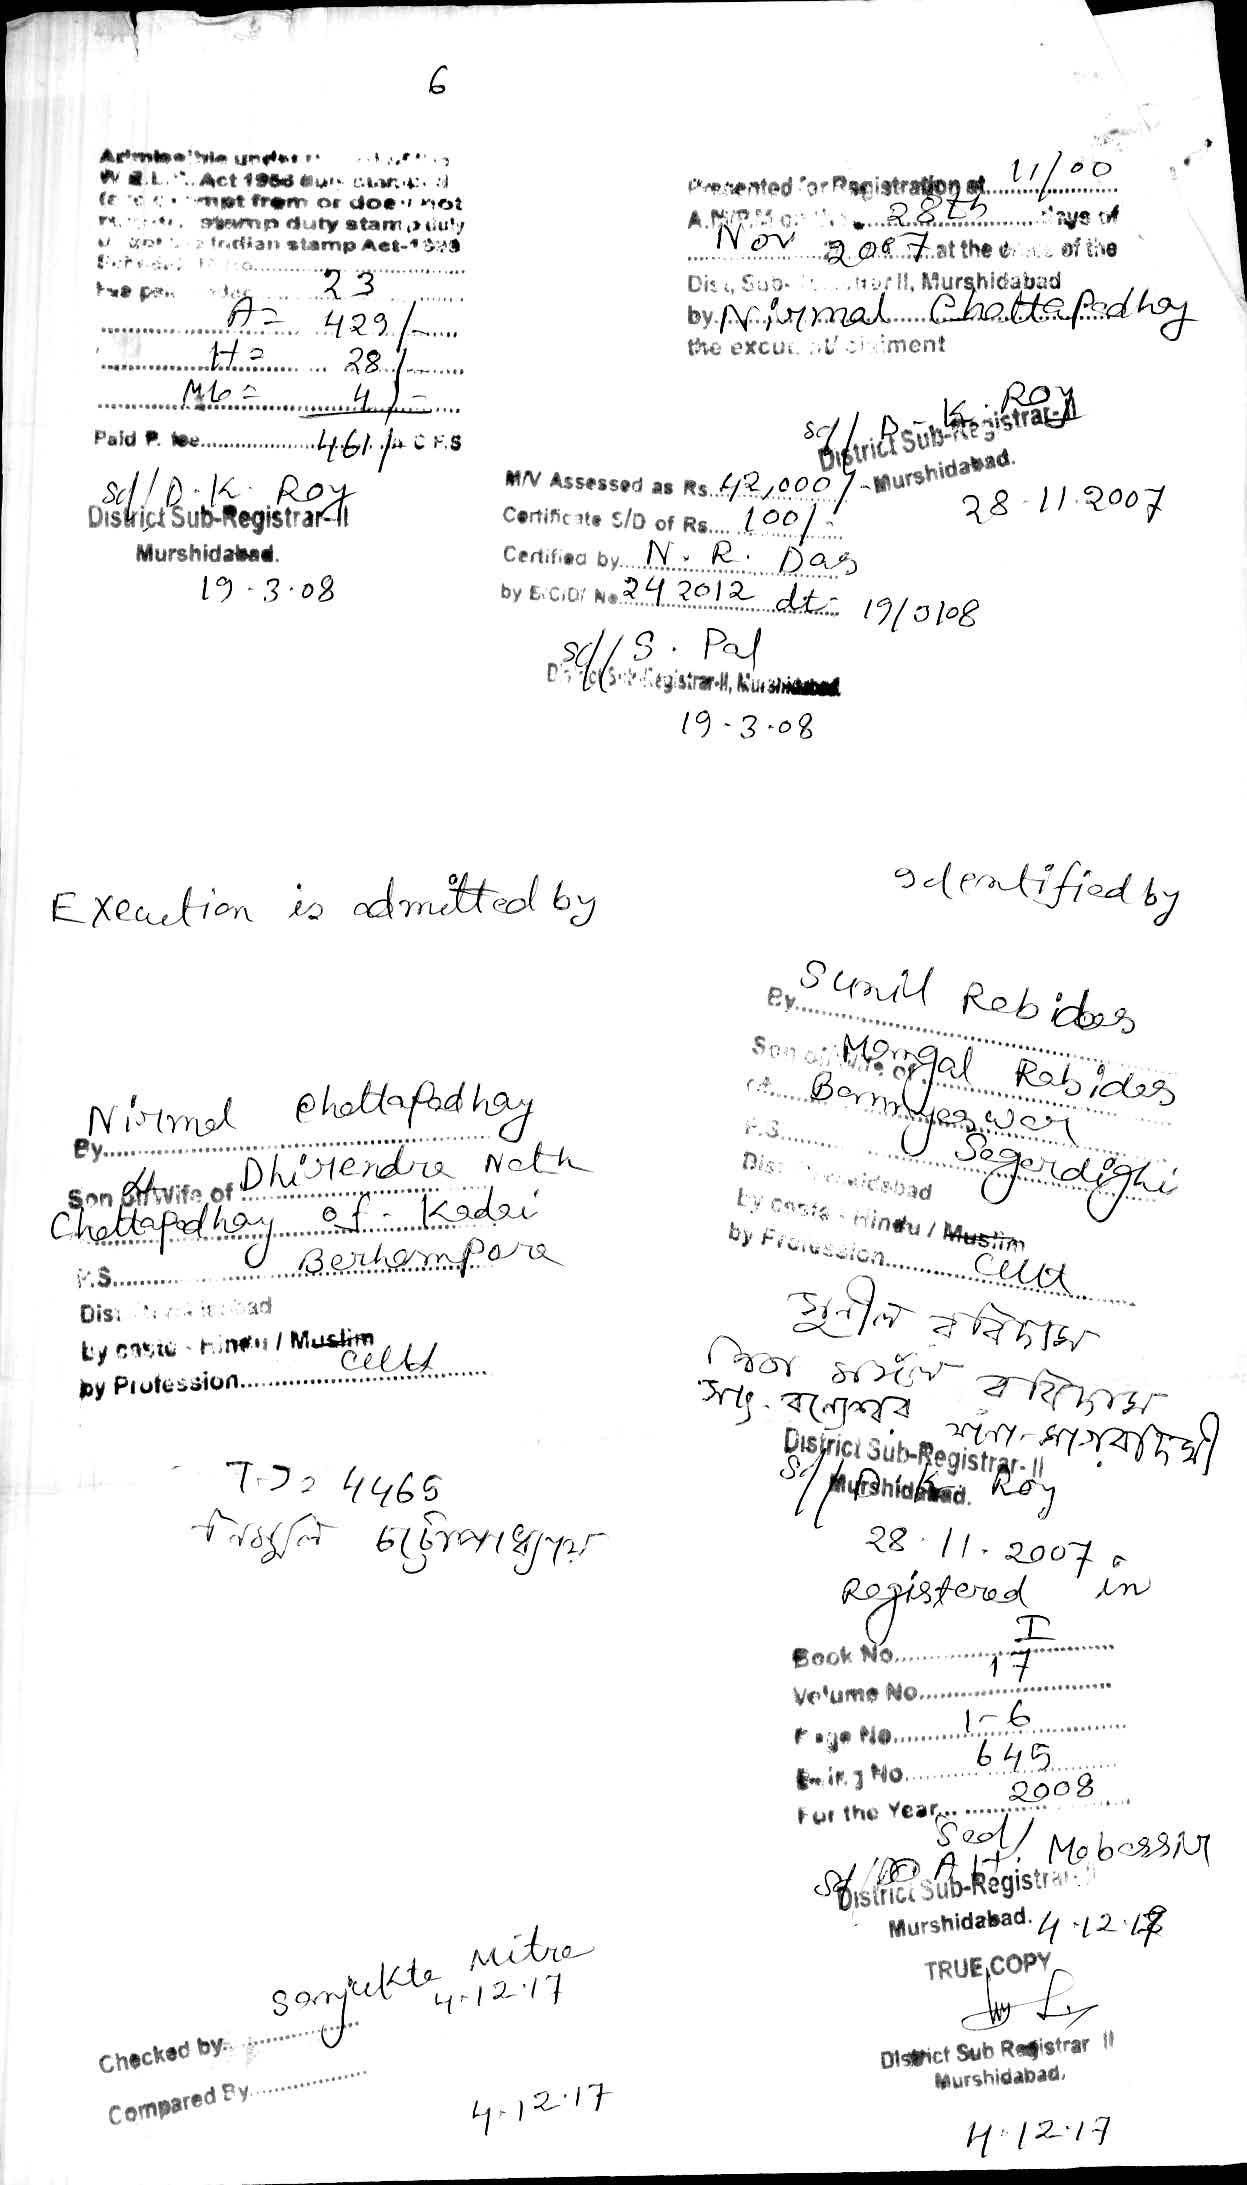 6
Admissible under
W.B.L. Act 1956 duly stamped
from or does not
stamp duty stamp duly
Indian stamp Act-1899
23
A= 429/-
H= 28/-
Mb= 4/-
Paid P. fee 461/-
sd/ D. K. Roy
District Sub-Registrar-II
Murshidabad.
19-3-08
Presented for Registration at 11/00
A.M/P.M on 28th days of
Nov 2007 at the of the
Dist, Sub- II, Murshidabad
by Nirmal Chattapadhay
the
sd/ D. K. Roy
District Sub-Registrar-II
Murshidabad.
28-11-2007
M/V Assessed as Rs. 42,000/-
Certificate S/D of Rs. 100/-
Certified by N. R. Das
by No 242012 dt-
sd/ S. Pal
District Sub-Registrar-II, Murshidabad
19-3-08
Execution is admitted by
Nirmal Chattapadhay
By
Son of/Wife of Dhirendra Nath
Chattapadhay of- Kadai
P.S. Berhampore
Dist
by caste - Hindu / Muslim
by Profession cult
4465
চট্টোপাধ্যায়
Identified by
By Sunil Rabidas
Son of/Wife of Mongal Rabidas
of
P.S. Sagardighi
Dist
by caste - Hindu / Muslim
by Profession cult
সুনীল রবিদাস
পিতা মঙ্গল রবিদাস
সাং- বন্যেশ্বর থানা- সাগরদিঘী
District Sub-Registrar-II
sd/ D. K. Roy
Murshidabad.
28-11-2007
Registered in
Book No. I
Volume No. 17
Page No. 1-6
Being No. 645
For the Year 2008
Sd/
sd/ A. H. Mobassir
District Sub-Registrar-II
Murshidabad.
TRUE COPY
District Sub Registrar II
Murshidabad.
4-12-17
Sanjukta Mitra
4-12-17
Checked by
Compared By
4-12-17